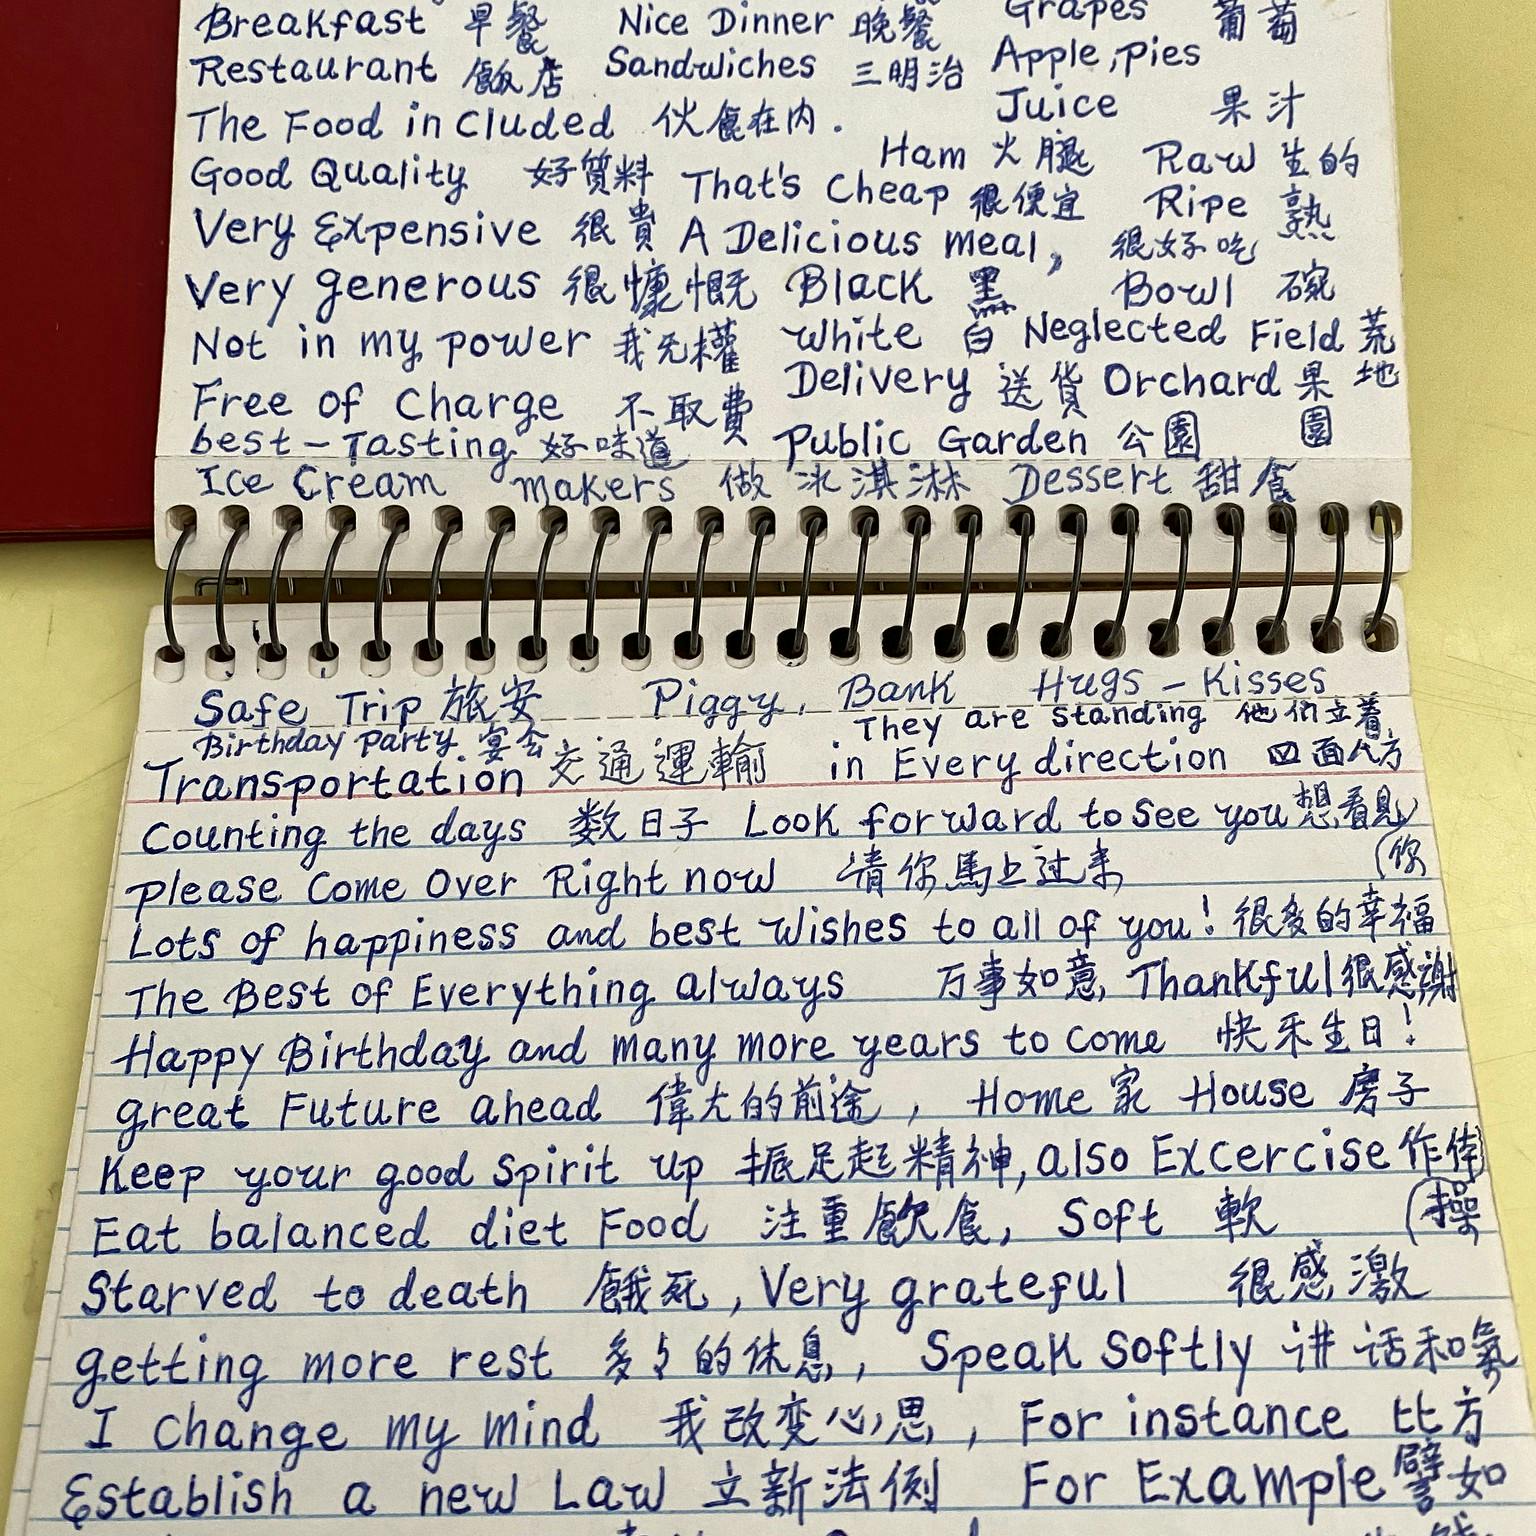 Breakfast 早餐 Nice Dinner 晚餐 Grapes 葡萄
Restaurant 飯店 Sandwiches 三明治 Apple, Pies
The Food in Cluded 伙食在内. Juice 果汁
Good Quality 好質料 That's Cheap 很便宜 Ham 火腿 Raw 生的
Very Expensive 很貴 A Delicious meal, 很好吃 Ripe 熟
Very generous 很慷慨 Black 黑 Bowl 碗
Not in my power 我无權 White 白 Neglected Field 荒地
Free of Charge 不取費 Delivery 送貨 Orchard 果園
best-Tasting 好味道 Public Garden 公園
Ice Cream makers 做冰淇淋 Dessert 甜食
Safe Trip 旅安 Piggy, Bank Hugs - Kisses
Birthday Party 宴会 They are standing 他们立着
Transportation 交通運輸 in Every direction 四面八方
Counting the days 数日子 Look forward to see you 想看見你
Please Come Over Right now 请你馬上过来
Lots of happiness and best wishes to all of you! 很多的幸福
The Best of Everything always 万事如意, Thankful 很感謝
Happy Birthday and many more years to come 快乐生日!
great Future ahead 偉大的前途, Home 家 House 房子
Keep your good Spirit up 振足起精神, also Excercise 作体操
Eat balanced diet Food 注重飲食, Soft 軟
Starved to death 餓死, Very grateful 很感激
getting more rest 多多的休息, Speak Softly 讲话和氣
I change my mind 我改变心思, For instance 比方
Establish a new Law 立新法例 For Example 譬如